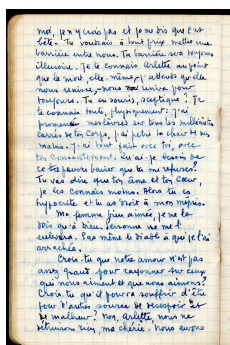 moi, je n'y crois pas et je me dis que c'est
bête. Tu voudrais à tout prix mettre une
barrière entre nous. Ta barrière sera toujours
illusoire. Je te connais Arlette au point
que la mort, elle-même, j'attends qu'elle
nous unisse, nous unira pour
toujours. Tu en souris, sceptique. Je
te connais toute, physiquement. J'ai
promené mes lèvres sur tous les millimètres
carrés de ton corps, j'ai pétri ta chair de mes
mains. J'ai tout fait avec toi, avec
ton consentement. Qu'ai-je besoin de
ce pauvre baiser que tu me refuses.
Tu vas dire que ton âme et ton cœur,
je les connais moins. Alors tu es
hypocrite et tu as droit à mon mépris.
Ma femme bien aimée, je ne la
dois qu'à Dieu. Personne ne me l'
enlèvera. Pas même le diable à qui je l'ai
arrachée.
Crois-tu que notre amour n'est pas
assez grand pour rayonner sur ceux
que nous aiment et que nous aimons?
Crois-tu qu'il pourra souffrir d'être
pour d'autres source de désespoir et
de malheur? Non, Arlette nous ne
détruirons rien, ma chérie. Nous avons